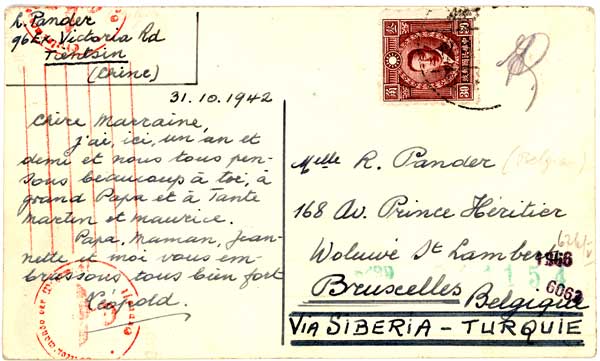 L. Pander
96 Ex. Victoria Rd
Tientsin
(Chine)
31.10.1942
Chère Marraine,
J'ai, ici, un an et
demi et nous tous pen-
sons beaucoup à toi, à
grand Papa et à Tante
Martin et Maurice.
Papa, Maman, Jean-
nette et moi vous em-
brassons tous bien fort
Léopold.
30
Melle R. Pander (Belgien)
168 Av. Prince Héritier
Woluwé St Lambert
Bruxcelles
Belgique
1946
6062
154
VIA SIBERIA - TURQUIE